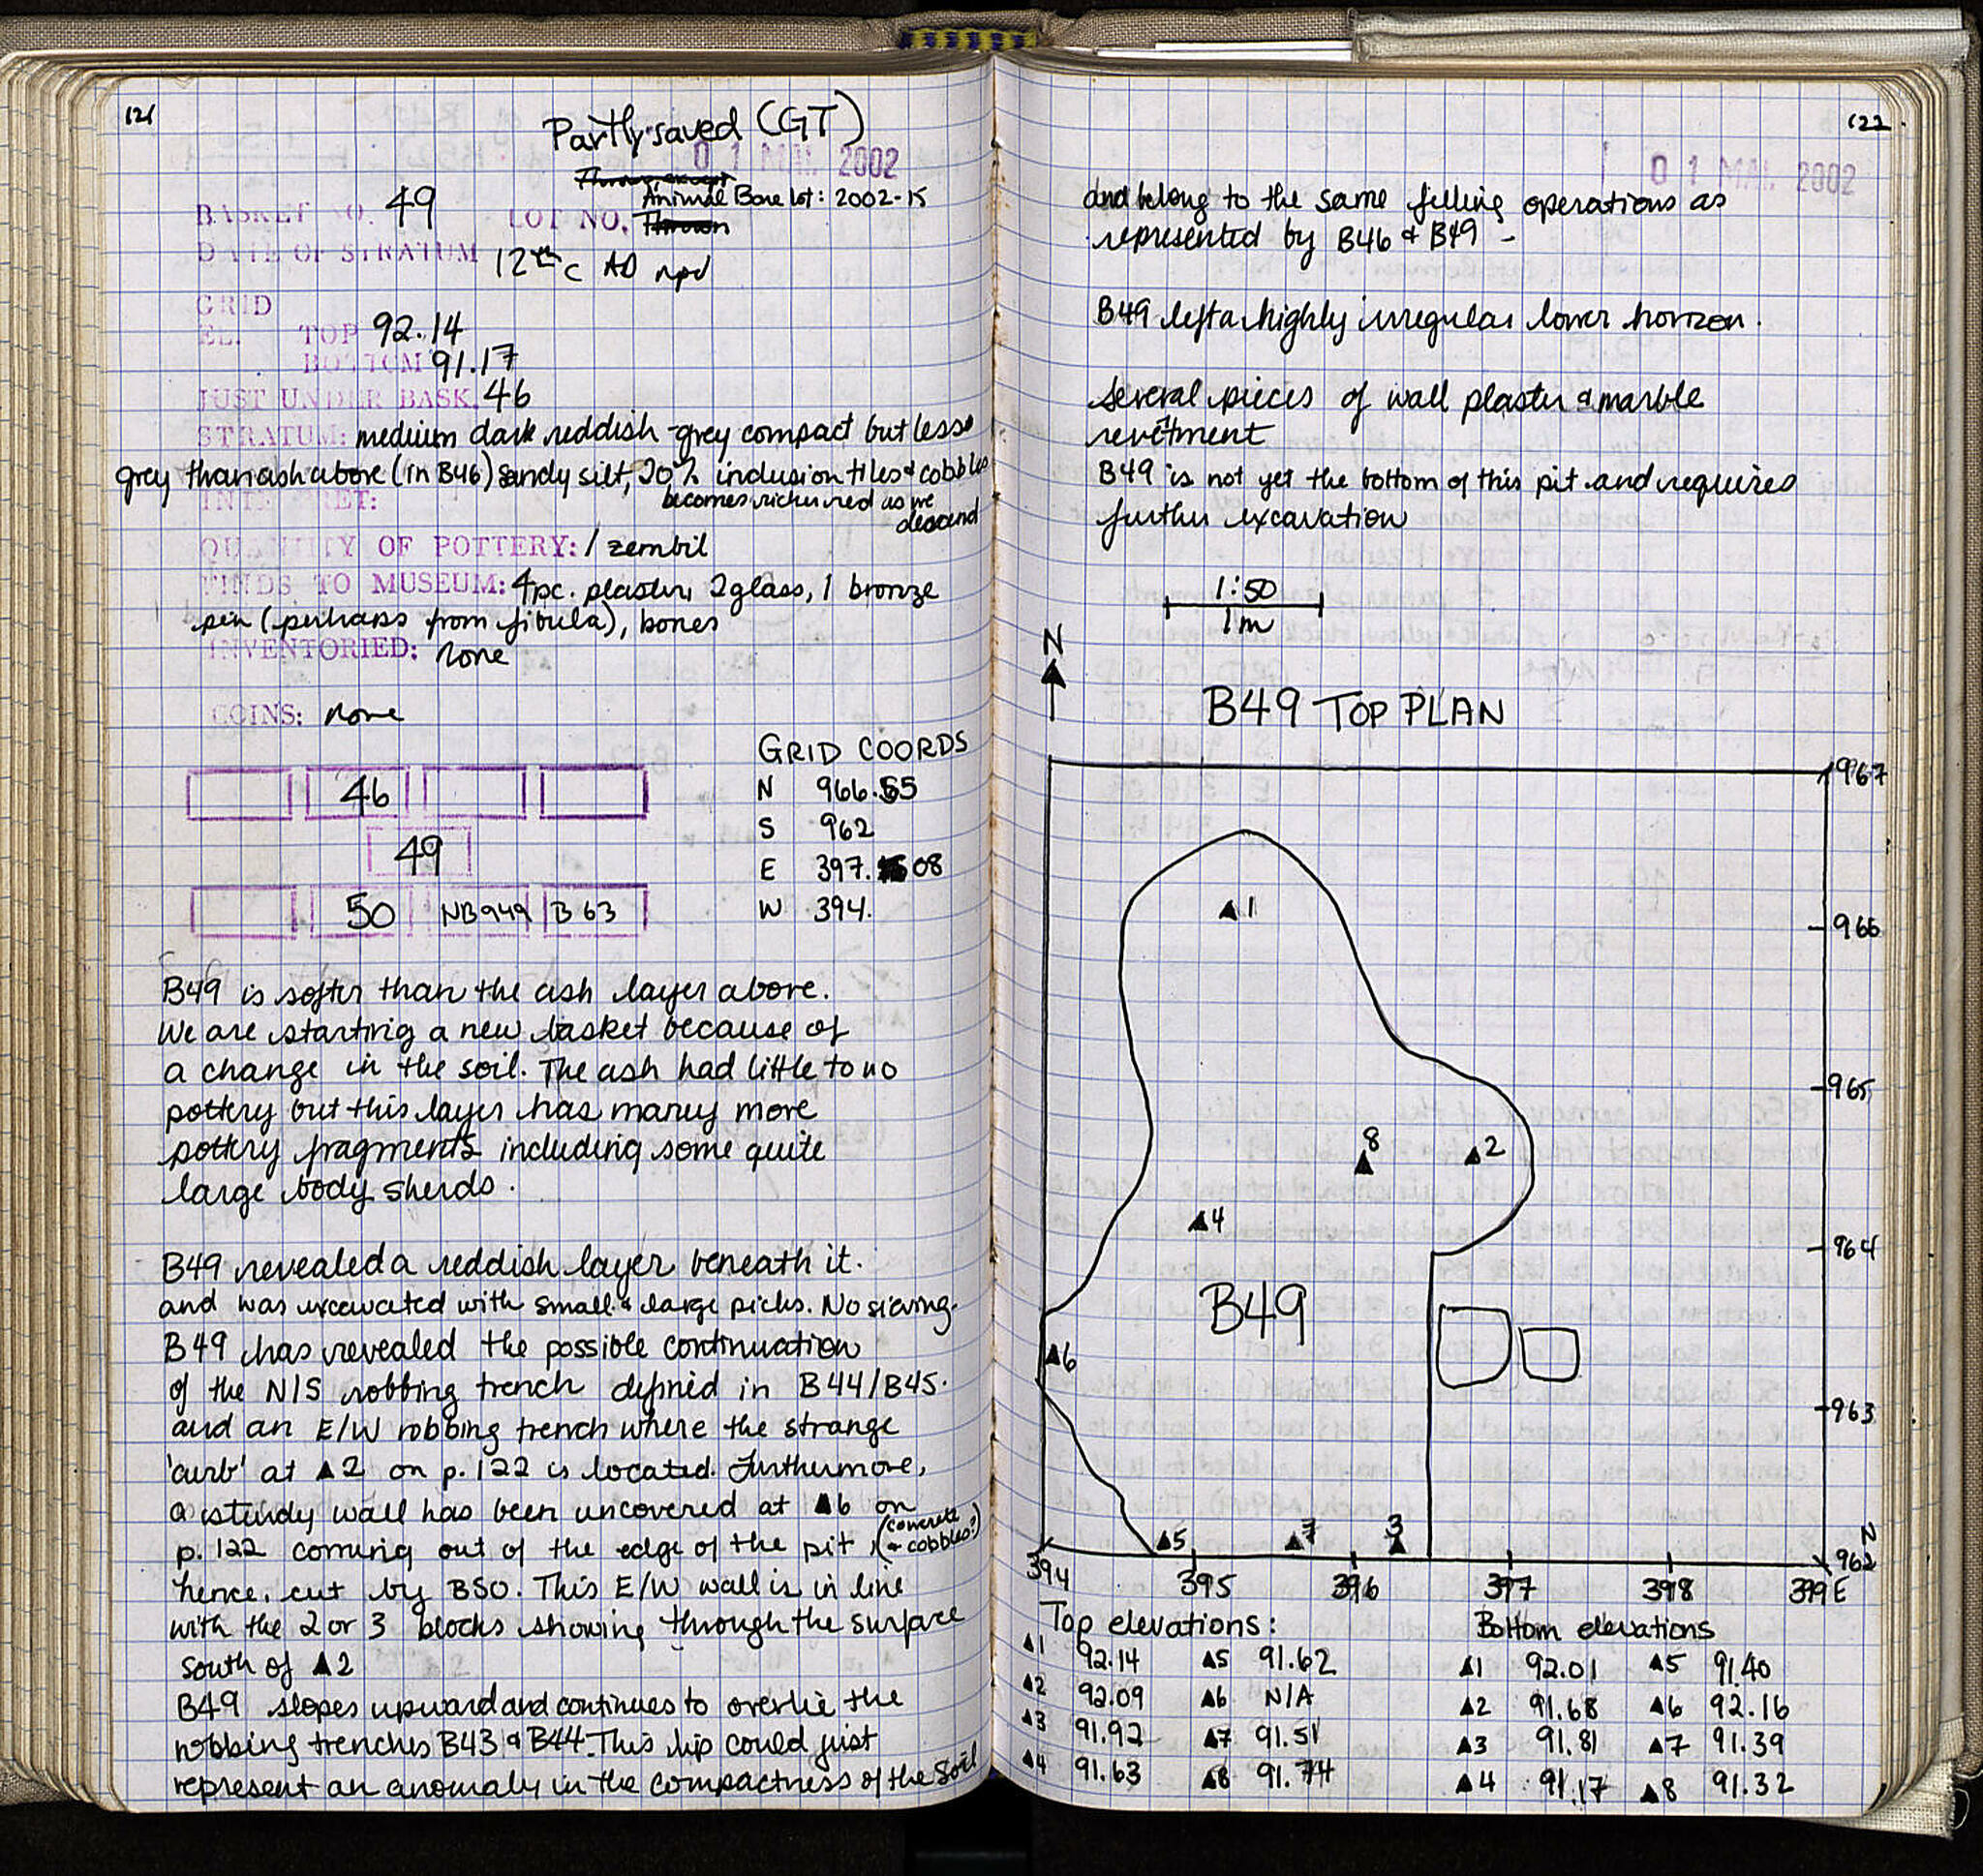 121
Partly saved (GT)
01 MAI. 2002
Animal Bone Lot: 2002-15
BASKET NO. 49 LOT NO. Thrown
DATE OF STRATUM 12th c AD npd
GRID
EL. TOP 92.14
BOTTOM 91.17
JUST UNDER BASK. 46
STRATUM: medium dark reddish-grey compact but less
grey than ash above (in B46) sandy silt, 20% inclusion tiles & cobbles
becomes richer red as we
descend
INTERPRET:
QUANTITY OF POTTERY: 1 zembil
FINDS TO MUSEUM: 4 pc. plaster, 2 glass, 1 bronze
pin (perhaps from fibula), bones
INVENTORIED: none
COINS: none
GRID COORDS
N 966.55
S 962
E 397.08
W 394.
46
49
50 NB949 B 63
B49 is softer than the ash layer above.
We are starting a new basket because of
a change in the soil. The ash had little to no
pottery but this layer has many more
pottery fragments including some quite
large body sherds.
B49 revealed a reddish layer beneath it.
and was excavated with small & large picks. No sieving.
B49 has revealed the possible continuation
of the N/S robbing trench defined in B44/B45.
and an E/W robbing trench where the strange
'curb' at ▲2 on p. 122 is located. Furthermore,
a sturdy wall has been uncovered at ▲6 on
p. 122 coming out of the edge of the pit, (concrete & cobbles?)
hence, cut by B50. This E/W wall is in line
with the 2 or 3 blocks showing through the surface
south of ▲2
B49 slopes upward and continues to overlie the
robbing trenches B43 & B44. This lip could just
represent an anomaly in the compactness of the soil
122
01 MAI. 2002
and belong to the same filling operations as
represented by B46 & B49 -
B49 left a highly irregular lower horizon.
Several pieces of wall plaster & marble
revêtment
B49 is not yet the bottom of this pit and requires
further excavation
1:50
1m
N
B49 TOP PLAN
967
▲1
966
965
▲8
▲2
▲4
964
B49
▲6
963
▲5
▲7
3
▲
N
962
394
395
396
397
398
399E
Top elevations: Bottom elevations
▲1 92.14 ▲5 91.62 ▲1 92.01 ▲5 91.40
▲2 92.09 ▲6 N/A ▲2 91.68 ▲6 92.16
▲3 91.92 ▲7 91.51 ▲3 91.81 ▲7 91.39
▲4 91.63 ▲8 91.74 ▲4 91.17 ▲8 91.32